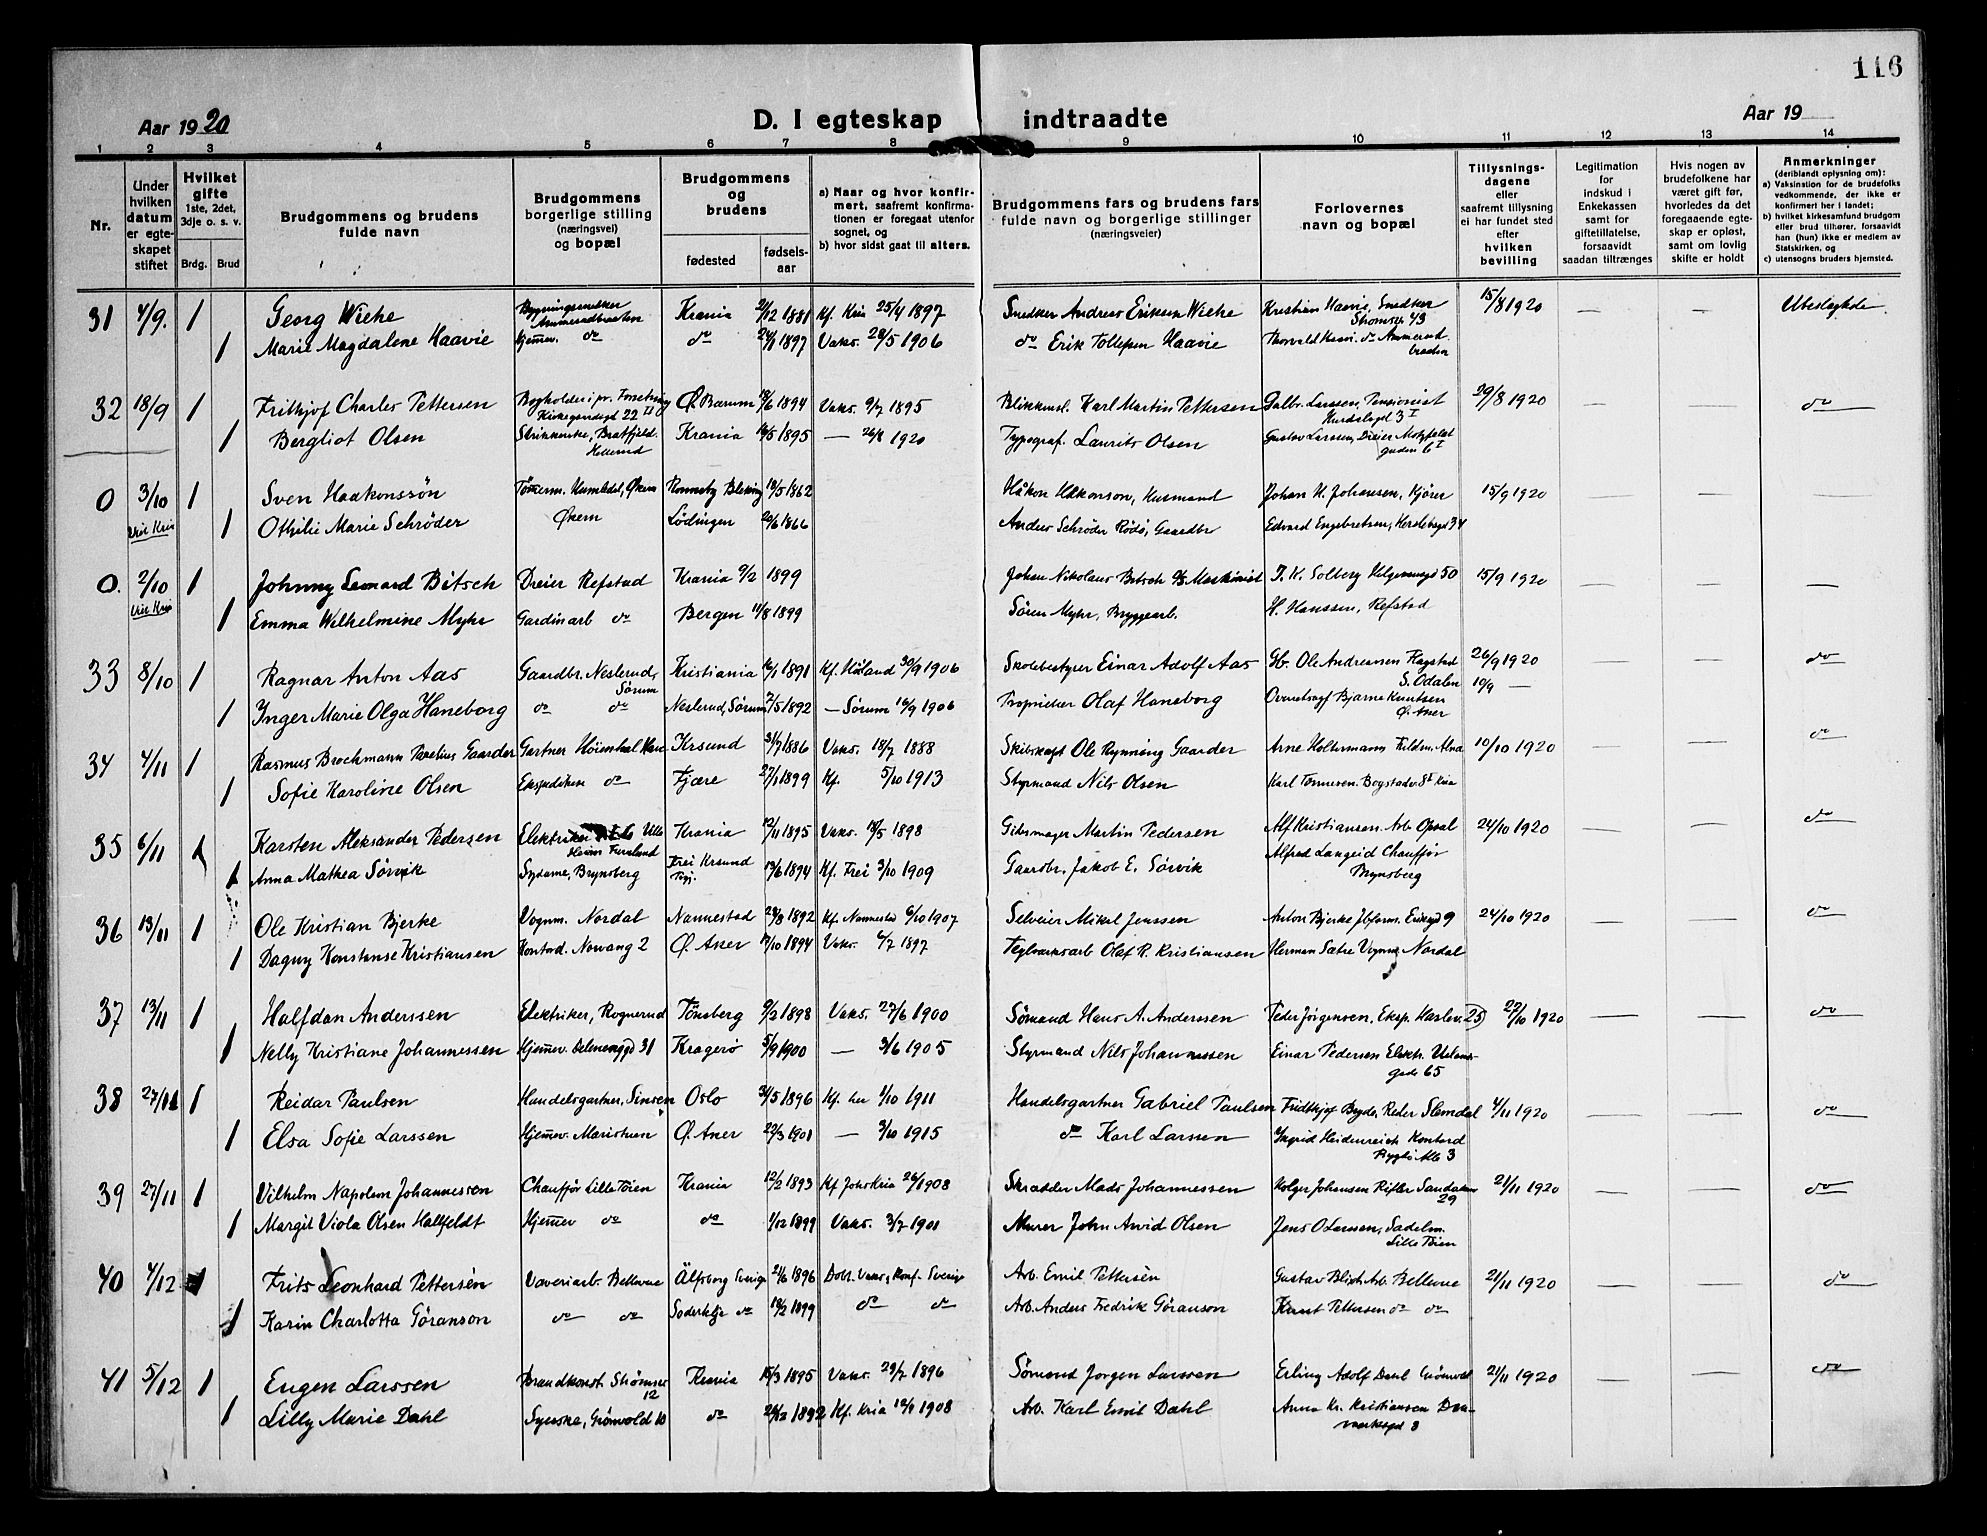 116
Aar 1920
D. I egteskap indtraadte
Aar 19
1 2 3 4 5 6 7 8 9 10 11 12 13 14
Nr.
Under
hvilken
datum
er egte-
skapet
stiftet
Hvilket
gifte
1ste, 2det,
3dje o. s. v.
Brdg. Brud
Brudgommens og brudens
fulde navn
Brudgommens
borgerlige stilling
(næringsvei)
og bopæl
Brudgommens
og
brudens
fødested
fødsels-
aar
a) Naar og hvor konfir-
mert, saafremt konfirma-
tionen er foregaat utenfor
sognet, og
b) hvor sidst gaat til alters.
Brudgommens fars og brudens fars
fulde navn og borgerlige stillinger
(næringsveier)
Forlovernes
navn og bopæl
Tillysnings-
dagene
eller
saafremt tillysning
ei har fundet sted
efter
hvilken
bevilling
Legitimation
for
indskud i
Enkekassen
samt for
giftetillatelse,
forsaavidt
saadan tiltrænges
Hvis nogen av
brudefolkene har
været gift før,
hvorledes da det
foregaaende egte-
skap er opløst,
samt om lovlig
skifte er holdt
Anmerkninger
(deriblandt oplysning om):
a) Vaksination for de brudefolks
vedkommende, der ikke er
konfirmert her i landet;
b) hvilket kirkesamfund brudgom
eller brud tilhører, forsaavidt
han (hun) ikke er medlem av
Statskirken, og
c) utensogns bruders hjemsted.
31 4/9. 1 Georg Wiehe Bygningssnedker Krania 2/12 1881 Kf. Kria 25/4 1897 Snedker Andreas Eriksen Wiehe Kristian Haavie, Snedker 15/8 1920 — —
Ammerudbraaten Stromsv. 43
1 Marie Magdalene Haavie Hjemv. do do 24/1 1897 Vaks. 28/5 1906 do Erik Tollefsen Haavie Thorvald Haavi. do Ammerud-
braaten
32 18/9 1 Frithjof Charles Pettersen Bogholder i pr. Forretning Ø. Bærum 18/6 1894 Vaks. 9/7 1895 Blikkensl. Karl Martin Pettersen Gulbr. Larssen, Pensionist 29/8 1920 — — do
Kirkegaardsgd 22 Hurdalsgd 3 I
1 Bergliot Olsen Krania 16/5 1895 — 26/8 1920 Typograf. Laurits Olsen Gustav Larssen, Dreier Motzfeldt
Hellerud gaden 6 I
0 3/10 1 Sven Haakonssøn Tømrerm. Økern Ronneby Bleking 13/5 1862 Håkon Håkonson, Husmand Johan H. Johansen, Kjører 15/9 1920 — — —
Viet Kria
1 Othilie Marie Schrøder Økern Lödingen 20/6 1866 Anders Schrøder Rödö, Gaardbr Edvard Engebretsen, Herslebsgd 34
0. 2/10 1 Johnny Leonard Bitsch Dreier Refstad Krania 9/2 1899 Johan Nikolaus Bitsch Maskinist J. K. Solberg Helgesensgd 50 15/9 1920 — — —
Viet Kria
1 Emma Wilhelmine Myhr Gardinarb do Bergen 11/8 1899 Søren Myhr, Bryggearb. H. Hanssen, Refstad
33 8/10 1 Ragnar Anton Aas Gaardbr. Neslerud, Kristiania 16/1 1891 Kf. Høland 30/9 1906 Skolebestyrer Einar Adolf Aas Gb. Ole Andreassen Hagstad 26/9 1920 — — do
Sørum S. Odalen 10/9 —
1 Inger Marie Olga Haneborg do do Neslerud, Sørum 7/5 1892 — Sørum 16/9 1906 Proprietær Olaf Haneborg Overretssagf Bjarne Knutsen
Ø. Aker
34 4/11 1 Rasmus Brochmann Gaarder Gartner Krsund 31/7 1886 Vaks. 18/7 1888 Skibskapt Ole Rynning Gaarder Arne Holtermann 10/10 1920 — — do
1 Sofie Karoline Olsen do Fjære 27/1 1899 Kf. 5/10 1913 Styrmand Nils Olsen Karl Tønnesen. Bogstadv. 8 I Kria
35 6/11 1 Karsten Aleksander Pedersen Elektriker Krania 12/11 1895 Vaks. 18/5 1898 Gibsmager Martin Pedersen Alf Kristiansen. Arb. Opsal 24/10 1920 — — do
Heim Furulund
1 Anna Mathea Sørvik Sydame, Brynsberg Frei Krsund 13/6 1894 Kf. Frei 3/10 1909 Gaardbr. Jakob E. Sörvik Alfred Langeid Chauffør
Brynsberg
36 13/11 1 Ole Kristian Bjerke Vognm. Nordal Nannestad 28/8 1892 Kf. Nannestad 6/10 1907 Selveier Mikal Jenssen Anton Bjerke Eriksgd 9 24/10 1920 — — do
1 Dagny Konstanse Kristiansen Kontord. Nowang 2 Ø. Aker 17/10 1894 Vaks. 6/7 1897 Teglverksarb Olaf R. Kristiansen Herman Sætre Vognm. Nordal
37 13/11 1 Halfdan Anderssen Elektriker, Rognerud Tönsberg 9/2 1898 Vaks. 27/6 1900 Sömand Hans A. Anderssen Peder Jørgensen, Eksp. Haslev. 25 22/10 1920 — — do
1 Nelly Kristiane Johannessen Hjemv. Delenenggd 31 Kragerö 5/9 1900 — 3/6 1905 Styrmand Nils Johannessen Einar Pedersen Elektr. Uelands-
gade 65
38 27/11 1 Reidar Paulsen Handelsgartner, Sinsen Oslo 31/5 1896 Kf. her 1/10 1911 Handelsgartner Gabriel Paulsen Fridthjof Bryde, Reder Slemdal 4/11 1920 — — do
1 Elsa Sofie Larssen Hjemv. Maristuen Ø. Aker 22/3 1901 — 3/10 1915 do Karl Larssen Ingrid Heidenreich Kontord
Bygdö Alle 3
39 27/11 1 Vilhelm Napoleon Johannessen Chauffør Lille Tøien Krania 12/2 1893 Kf Joh. Kria 26/1 1908 Skrædder Mads Johannessen Holger Johansen 21/11 1920 — — do
29
1 Margit Viola Olsen Hallfeldt Hjemv do do 1/12 1899 Vaks. 3/7 1901 Murer John Arvid Olsen Jens O Larssen, Sadelm.
Lille Töien
40 4/12 1 Frits Leonhard Pettersén Væveriarb. Bellevue Älfsborg Sverige 21/6 1896 Dobt. Vaks, Konf. Sverige Arb. Emil Pettersén Gustav Arb. Bellevue 21/11 1920 — — do
1 Karin Charlotta Göranson do do Södertelje do 18/2 1899 do do Arb. Anders Fredrik Göranson Knut Pettersen do do
41 5/12 1 Eugen Larssen Brandkonst. Strømsv Krania 15/3 1895 Vaks. 29/7 1896 Sömand Jørgen Larssen Erling Adolf Dahl Grönvold 21/11 1920 — — do
12
1 Lilly Marie Dahl Syerske, Grönvold 10 do 26/12 1892 Kf. Kria 12/1 1908 Arb. Karl Emil Dahl Anna Kr. Kristiansen Dan-
marksgd 8